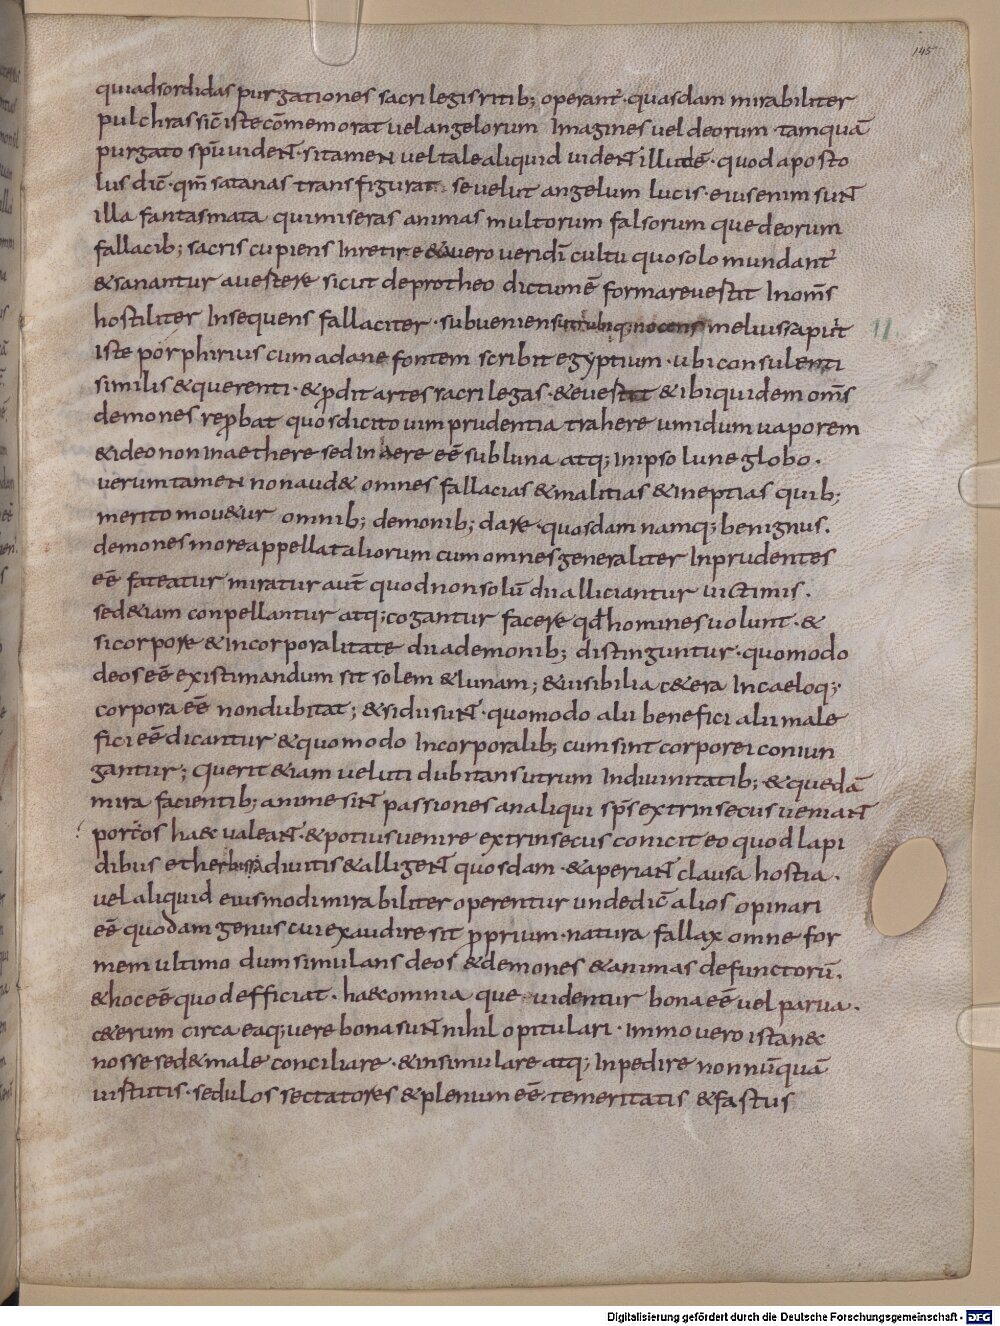 145
quiadsordidas purgationes sacri legisritib; operant̄· quasdam mirabiliter
pulchras sic̄ iste cōmemorat vel angelorum Imagines vel deorum tamquā
purgato spū vident· sitamen vel tale aliquid vident illudē· quod aposto
lus dic̄· qm̄ satanas transfigurat se velut angelum lucis· eius enim sunt
illa fantasmata qui miseras animas multorum falsorum que deorum
fallacib; sacris cupiens Inretire & a vero veri dī cultu quo solo mundant̄
& sanantur avestere sicut de protheo dictumē formare vestit In om̄s
hostiliter Insequens fallaciter· subveniens utrubiq; nocens melius sapuit
11.
iste porphirius cum ad ane fontem scribit egyptium· ubi consulenti
similis & querenti· & prodit artes sacrilegas· & evestit & ibi quidem om̄s
demones reprobat quos dicit ovim prudentia trahere umidum vaporem
& ideo non In aethere sed in aere eē sub luna atq; In ipso lune globo·
verumtamen non aud& omnes fallacias & malitias & ineptias quib;
merito mov&ur omnib; demonib; dare· quosdam namq; benignus·
demones more appellat aliorum cum omnes generaliter Inprudentes
eē fateatur miratur aut̄ quod non solū dii alliciantur victimis·
sed&iam conpellantur atq; cogantur facere qd̄ homines volunt· &
si corpore & incorporalitate dii a demonib; distinguntur· quomodo
deos eē existimandum sit solem & lunam; & visibilia c&era In caeloq;
corpora eē non dubitat; & si dii sunt· quomodo alii benefici alii male
fici eē dicantur & quomodo Incorporalib; cum sint corporei coniun
gantur; Querit &iam veluti dubitans utrum In divinitatib; & quedā
mira facientib; anime sint passiones an aliqui sp̄s extrinsecus veniant
per c̄os ha&c valeant· & potius venire extrinsecus conicit eo quod lapi
dibus et herbis ad ivitis & alligent quosdam· & aperiant clausa hostia·
vel aliquid eiusmodi mirabiliter operentur unde dic̄ alios opinari
eē quodam genus cui exaudire sit proprium· natura fallax omne for
mem ultimo dum simulans deos & demones & animas defunctorū·
& hoc eē quod efficiat· ha&c omnia que videntur bona eē vel parva·
c&erum circa eaq; vere bona sunt nihil opitulari· Immo vero ista n&c
nosse sed & male conciliare· & insimulare atq; Inpedire non nūquā
virtutis· sedulos sectatores & plenum eē· temeritatis & fastus
Digitalisierung gefördert durch die Deutsche Forschungsgemeinschaft - DFG